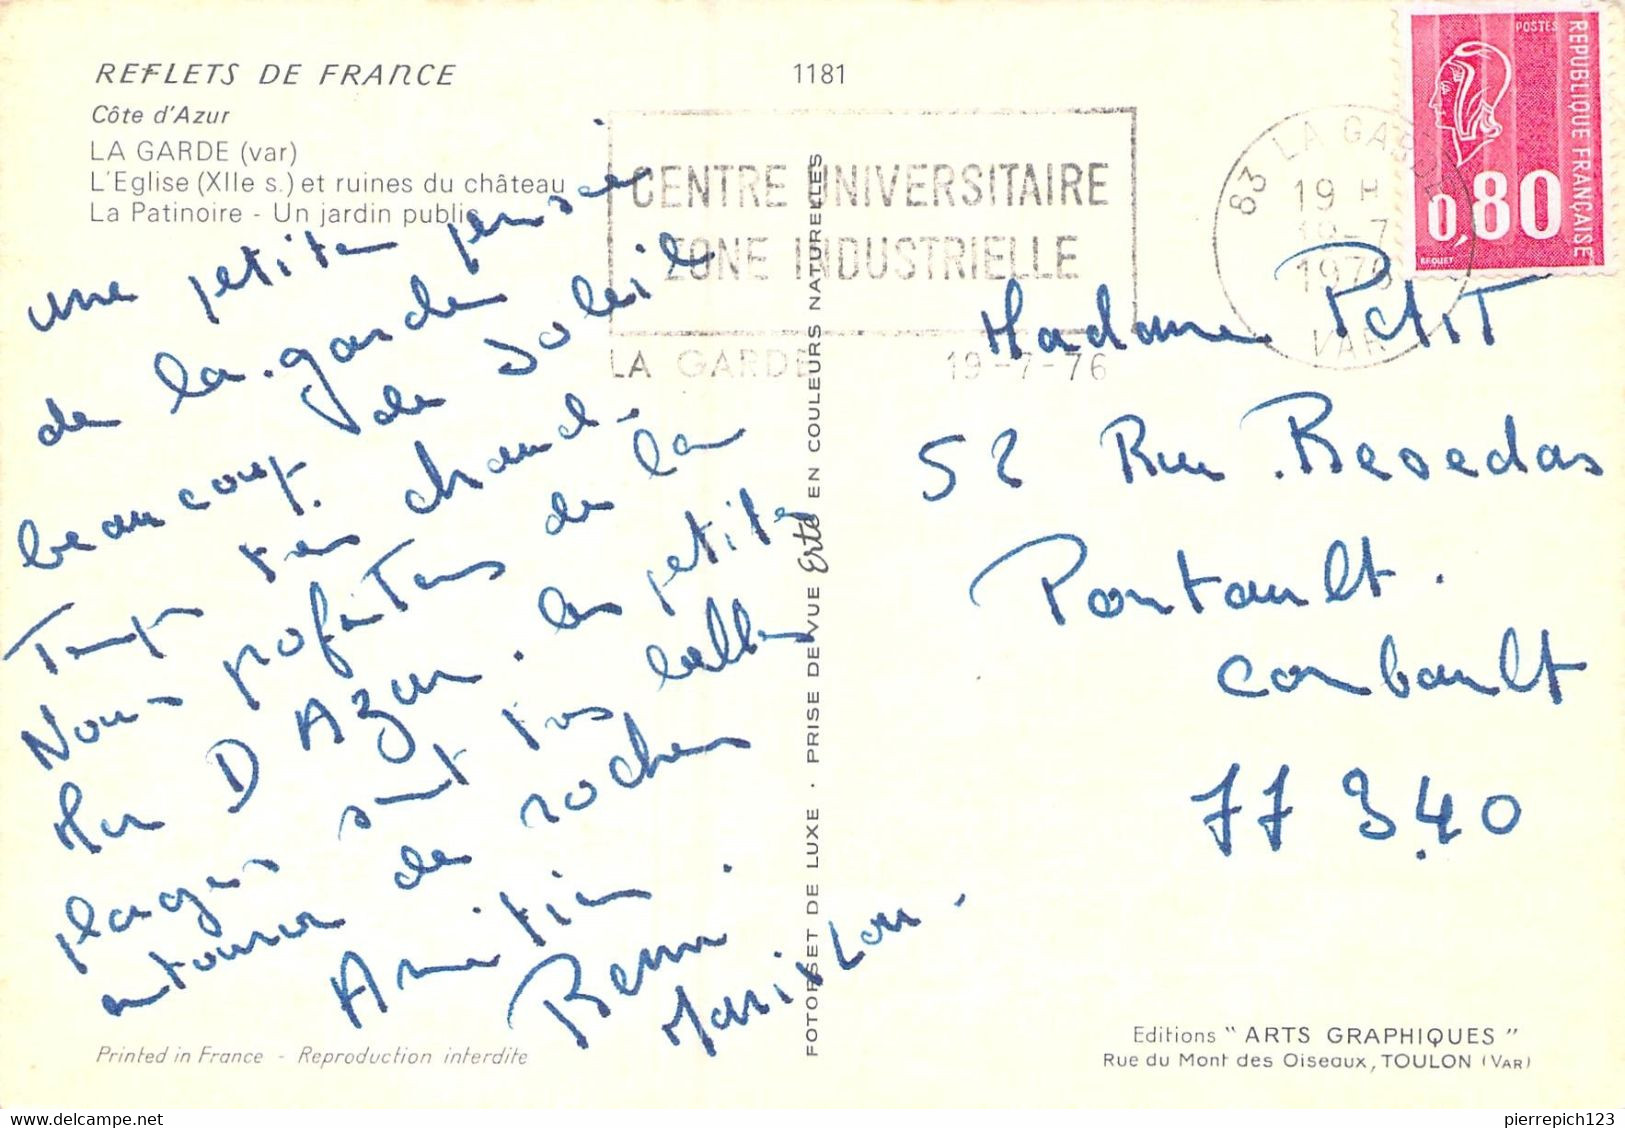 REFLETS DE FRANCE
Côte d'Azur
LA GARDE (var)
L'Eglise (XIIe s.) et ruines du château
La Patinoire - Un jardin public
1181
CENTRE UNIVERSITAIRE
ZONE INDUSTRIELLE
LA GARDE 19-7-76
83 LA GARDE
19 H
19-7
1976
VAR
POSTES
REPUBLIQUE FRANÇAISE
0,80
BEQUET
une petite pensée
de la garde
beaucoup de Soleil
Temps tres chaud-
Nous profitons de la
Mer D Azur. les petites
plages sont tres belles
entourer de rochers
Amitiés.
Remi.
Marilou.
FOTORSET DE LUXE · PRISE DE VUE Erta EN COULEURS NATURELLES
Madame Petit
52 Rue Besedas
Pontault.
combault
77 340
Printed in France - Reproduction interdite
Editions "ARTS GRAPHIQUES"
Rue du Mont des Oiseaux, TOULON (VAR)
pierrepich123